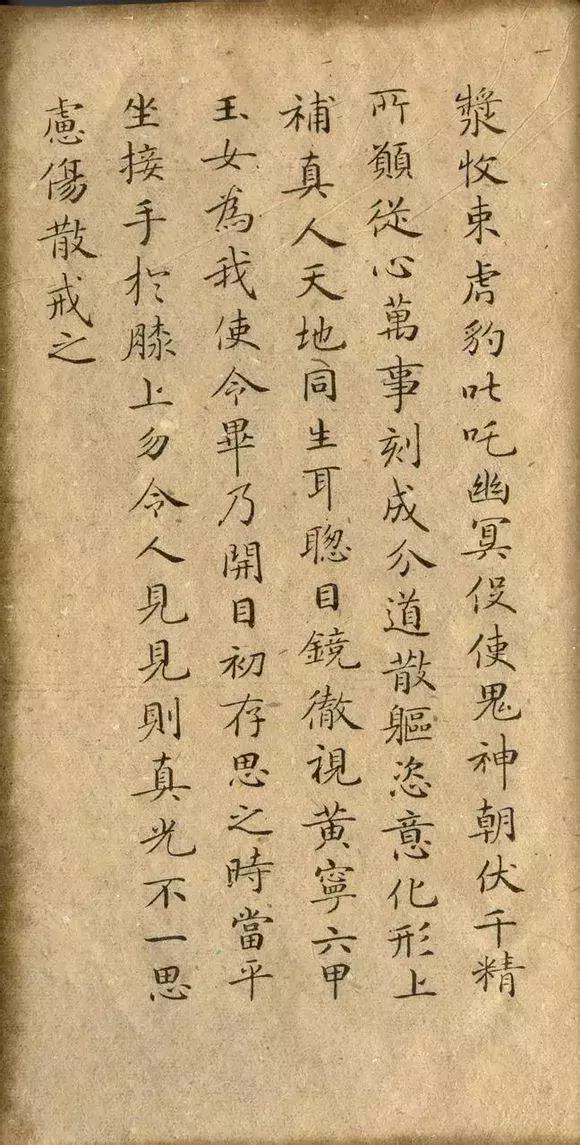 漿收束虎豹叱吒幽冥役使鬼神朝伏千精
所願從心萬事刻成分道散軀恣意化形上
補真人天地同生耳聰目鏡徹視黃寧六甲
玉女為我使令畢乃開目初存思之時當平
坐接手於膝上勿令人見見則真光不一思
慮傷散戒之